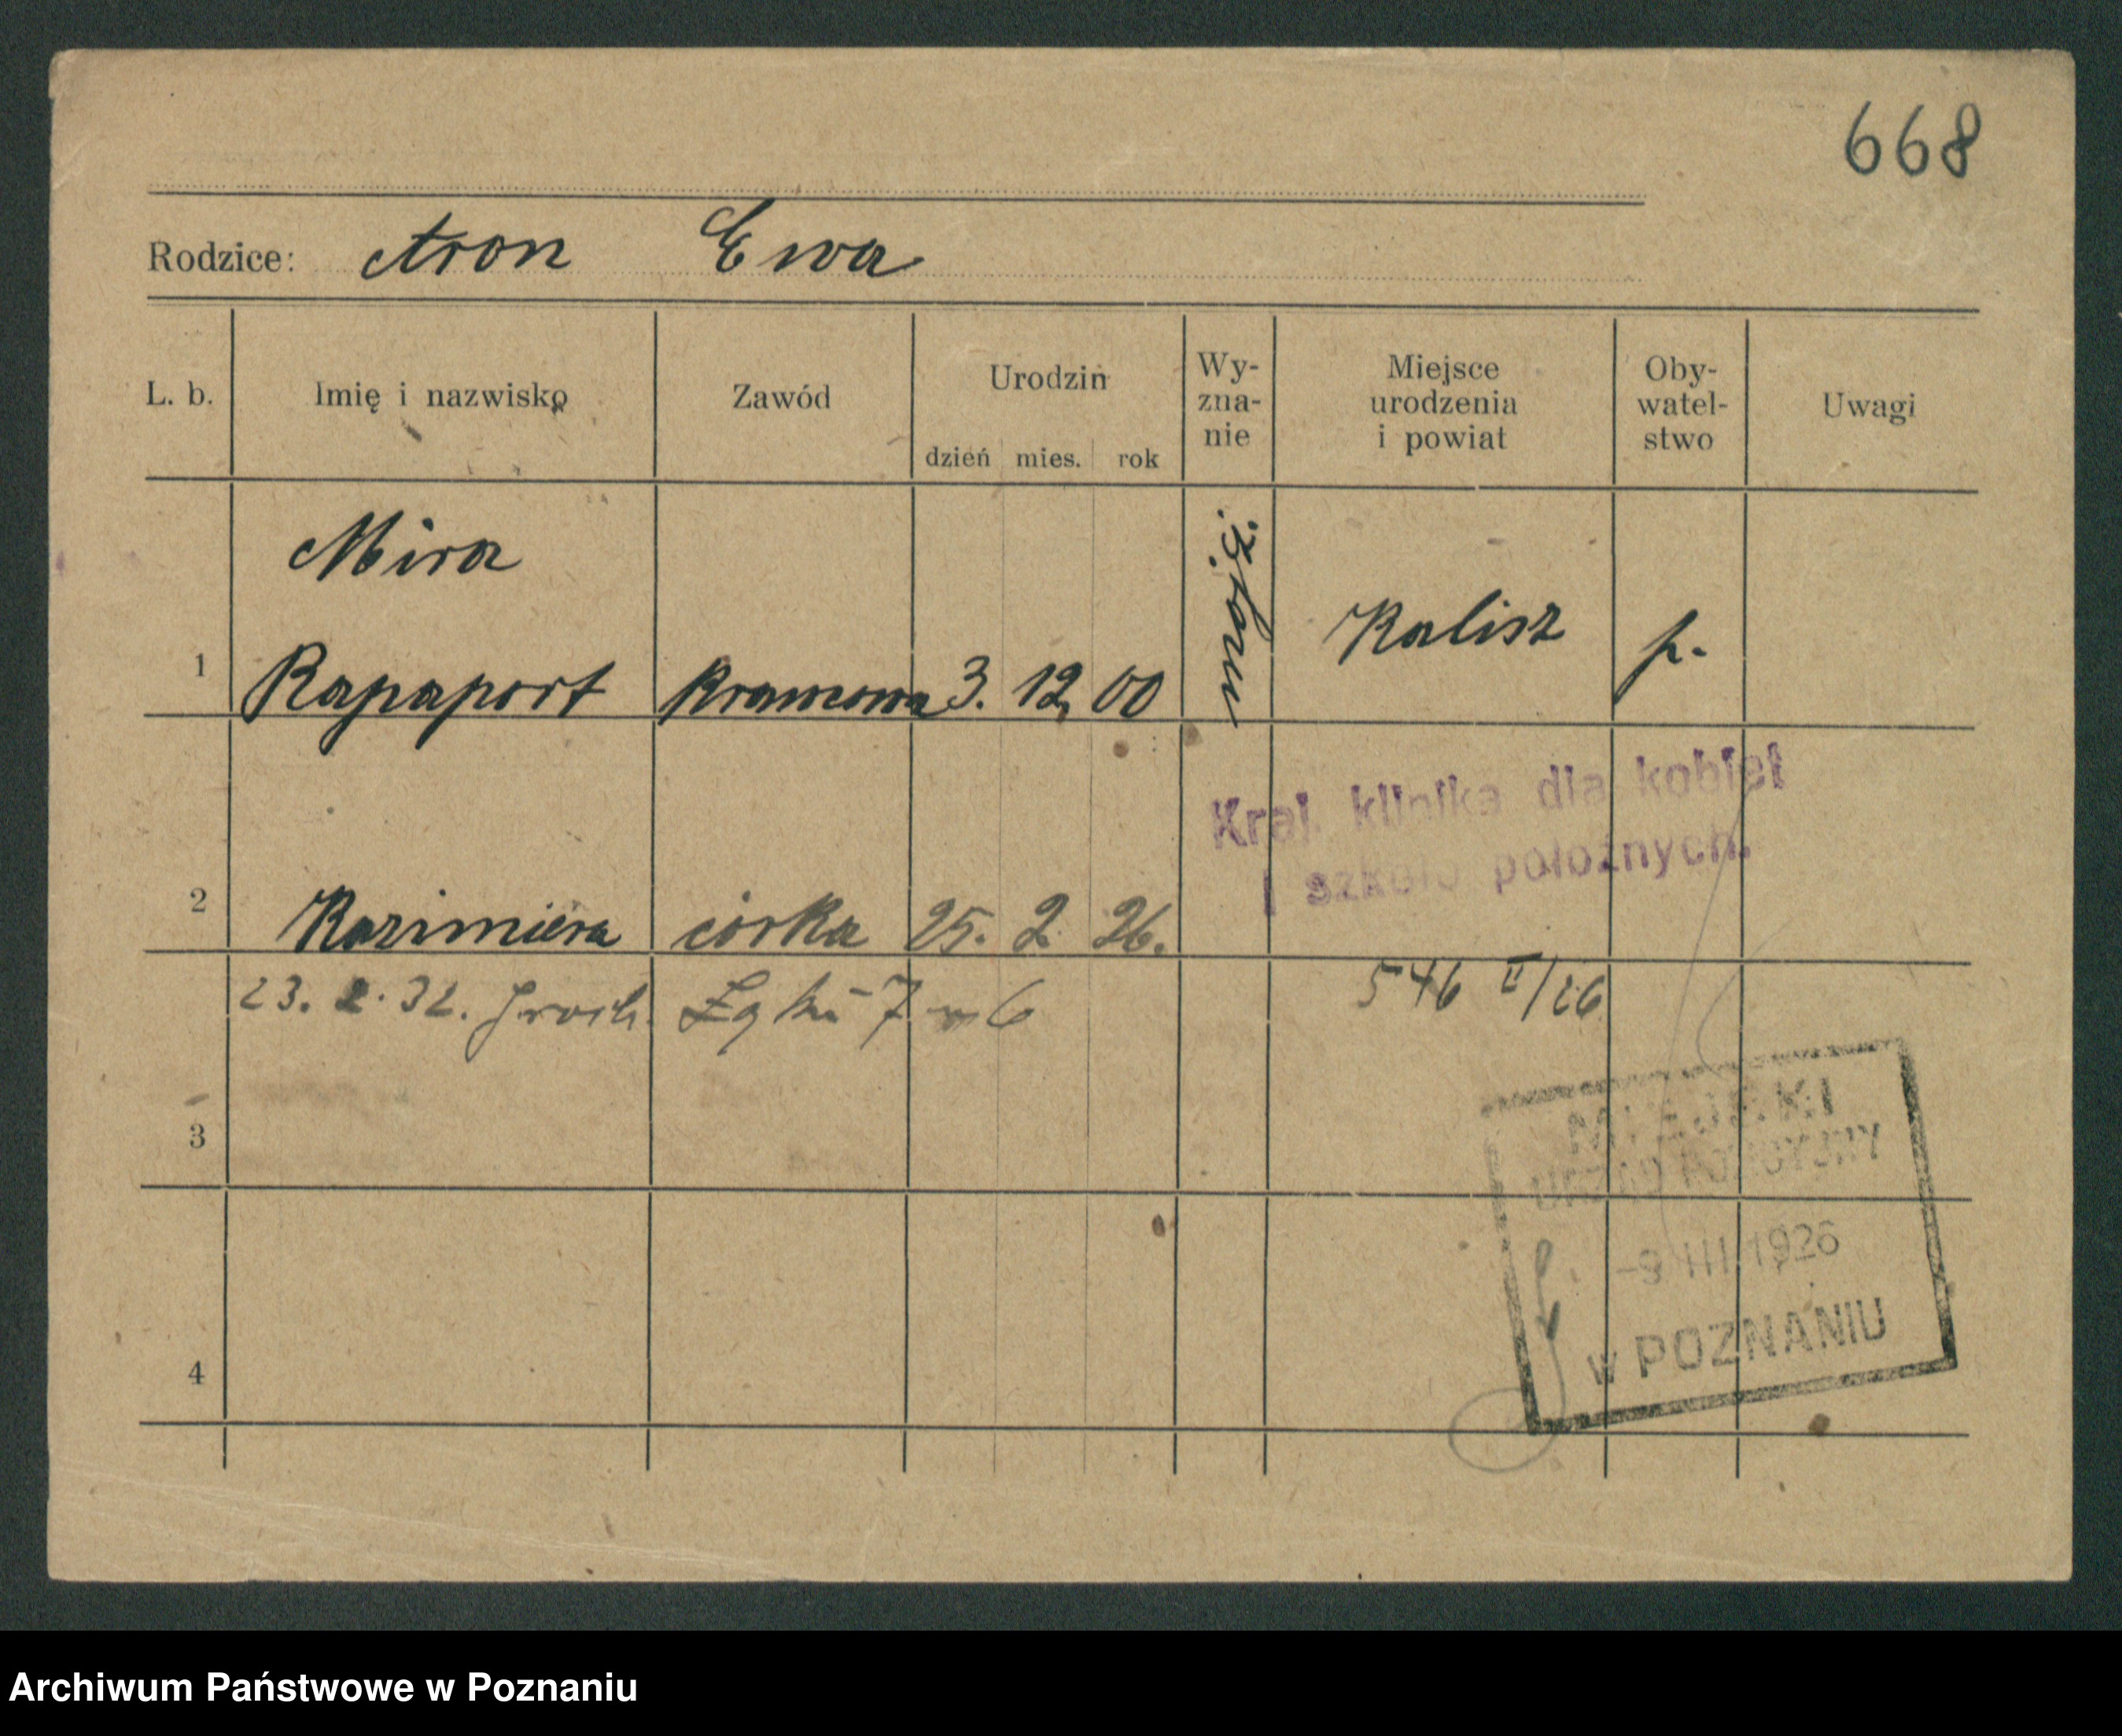 668
Rodzice: Aron Ewa
L. b. Imię i nazwisko Zawód Urodzin dzień mies. rok Wy- zna- nie Miejsce urodzenia i powiat Oby- watel- stwo Uwagi
Mira
1 Rapaport krawcowa 3. 12. 00 Kalisz p.
Kraj. klinika dla kobiet
i szkoła położnych.
2 Kazimiera córka 25. 2. 26.
23. 2. 32. 7 m 6 546 II/26
3
MIEJSKI
URZĄD POLICYJNY
-9 III 1926
w POZNANIU
4
Archiwum Państwowe w Poznaniu